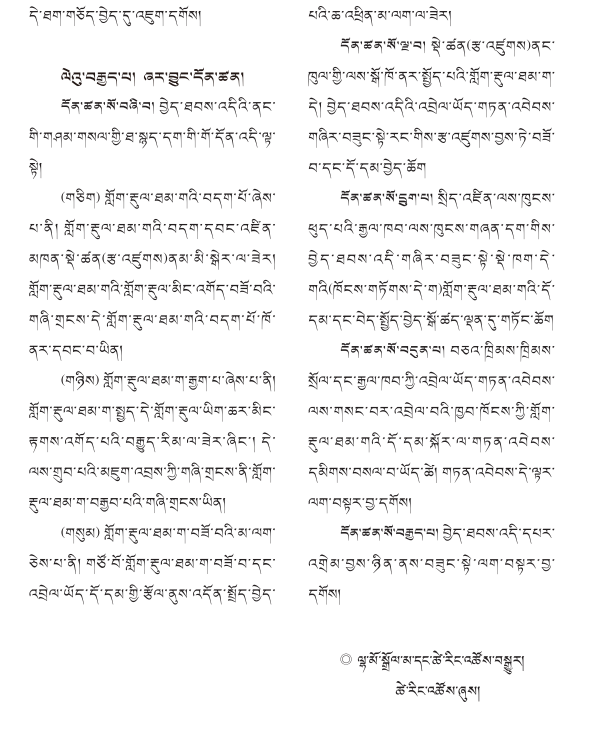 དེ་ཐག་གཅོད་བྱེད་དུ་འཇུག་དགོས།
ལེའུ་བརྒྱད་པ། ཞར་བྱུང་དོན་ཚན།
དོན་ཚན་སོ་བཞི་བ། བྱེད་ཐབས་འདིའི་ནང་
གི་གཤམ་གསལ་གྱི་ཐ་སྙད་དག་གི་གོ་དོན་འདི་ལྟ་
སྟེ།
(གཅིག) གློག་རྡུལ་ཐམ་གའི་བདག་པོ་ཞེས་
པ་ནི། གློག་རྡུལ་ཐམ་གའི་བདག་དབང་འཛིན་
མཁན་སྡེ་ཚན(རྩ་འཛུགས)ནམ་མི་སྒེར་ལ་ཟེར།
གློག་རྡུལ་ཐམ་གའི་གློག་རྡུལ་མིང་འགོད་བཟོ་བའི་
གཞི་གྲངས་དེ་གློག་རྡུལ་ཐམ་གའི་བདག་པོ་ཁོ་
ནར་དབང་བ་ཡིན།
(གཉིས) གློག་རྡུལ་ཐམ་ག་རྒྱག་པ་ཞེས་པ་ནི།
གློག་རྡུལ་ཐམ་ག་སྤྱད་དེ་གློག་རྡུལ་ཡིག་ཆར་མིང་
རྟགས་འགོད་པའི་བརྒྱུད་རིམ་ལ་ཟེར་ཞིང་། དེ་
ལས་གྲུབ་པའི་མཇུག་འབྲས་ཀྱི་གཞི་གྲངས་ནི་གློག་
རྡུལ་ཐམ་ག་བརྒྱབ་པའི་གཞི་གྲངས་ཡིན།
(གསུམ) གློག་རྡུལ་ཐམ་ག་བཟོ་བའི་མ་ལག་
ཅེས་པ་ནི། གཙོ་བོ་གློག་རྡུལ་ཐམ་ག་བཟོ་བ་དང་
འབྲེལ་ཡོད་དོ་དམ་གྱི་རྩོལ་ནུས་འདོན་སྤྲོད་བྱེད་
པའི་ཆ་འཕྲིན་མ་ལག་ལ་ཟེར།
དོན་ཚན་སོ་ལྔ་བ། སྡེ་ཚན(རྩ་འཛུགས)ནང་
ཁུལ་གྱི་ལས་སྒོ་ཁོ་ནར་སྤྱོད་པའི་གློག་རྡུལ་ཐམ་ག་
དེ། བྱེད་ཐབས་འདིའི་འབྲེལ་ཡོད་གཏན་འབེབས་
གཞིར་བཟུང་སྟེ་རང་གིས་རྩ་འཛུགས་བྱས་ཏེ་བཟོ་
བ་དང་དོ་དམ་བྱེད་ཆོག
དོན་ཚན་སོ་དྲུག་པ། སྲིད་འཛིན་ལས་ཁུངས་
ཕུད་པའི་རྒྱལ་ཁབ་ལས་ཁུངས་གཞན་དག་གིས་
བྱེད་ཐབས་འདི་གཞིར་བཟུང་སྟེ་སྡེ་ཁག་དེ་
གའི(ཁོངས་གཏོགས་དེ་ག)གློག་རྡུལ་ཐམ་གའི་དོ་
དམ་དང་བེད་སྤྱོད་བྱེད་སྒོ་ཚད་ལྡན་དུ་གཏོང་ཆོག
དོན་ཚན་སོ་བདུན་པ། བཅའ་ཁྲིམས་ཁྲིམས་
སྲོལ་དང་རྒྱལ་ཁབ་ཀྱི་འབྲེལ་ཡོད་གཏན་འབེབས་
ལས་གསང་བར་འབྲེལ་བའི་ཁྱབ་ཁོངས་ཀྱི་གློག་
རྡུལ་ཐམ་གའི་དོ་དམ་སྐོར་ལ་གཏན་འབེབས་
དམིགས་བསལ་བ་ཡོད་ཚེ། གཏན་འབེབས་དེ་ལྟར་
ལག་བསྟར་བྱ་དགོས།
དོན་ཚན་སོ་བརྒྱད་པ། བྱེད་ཐབས་འདི་དཔར་
འགྲེམ་བྱས་ཉིན་ནས་བཟུང་སྟེ་ལག་བསྟར་བྱ་
དགོས།
◎ ལྷ་མོ་སྒྲོལ་མ་དང་ཚེ་རིང་འཚོས་བསྒྱུར།
ཚེ་རིང་འཚོས་ཞུས།